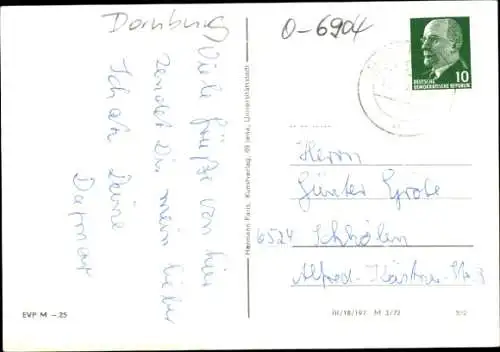 Dornburg
Viele Grüße von hier
sendet Dir mein lieber
Schatz Deine
Dagmar
O-6904
DEUTSCHE
DEMOKRATISCHE REPUBLIK
10
Herrn
Günter Große
6524 Schkölen
Alfred-Kästner-Str. 3
Hermann Paris, Kunstverlag, 69 Jena, Universitätsstadt
EVP M -.25
III/18/197 M 3/72